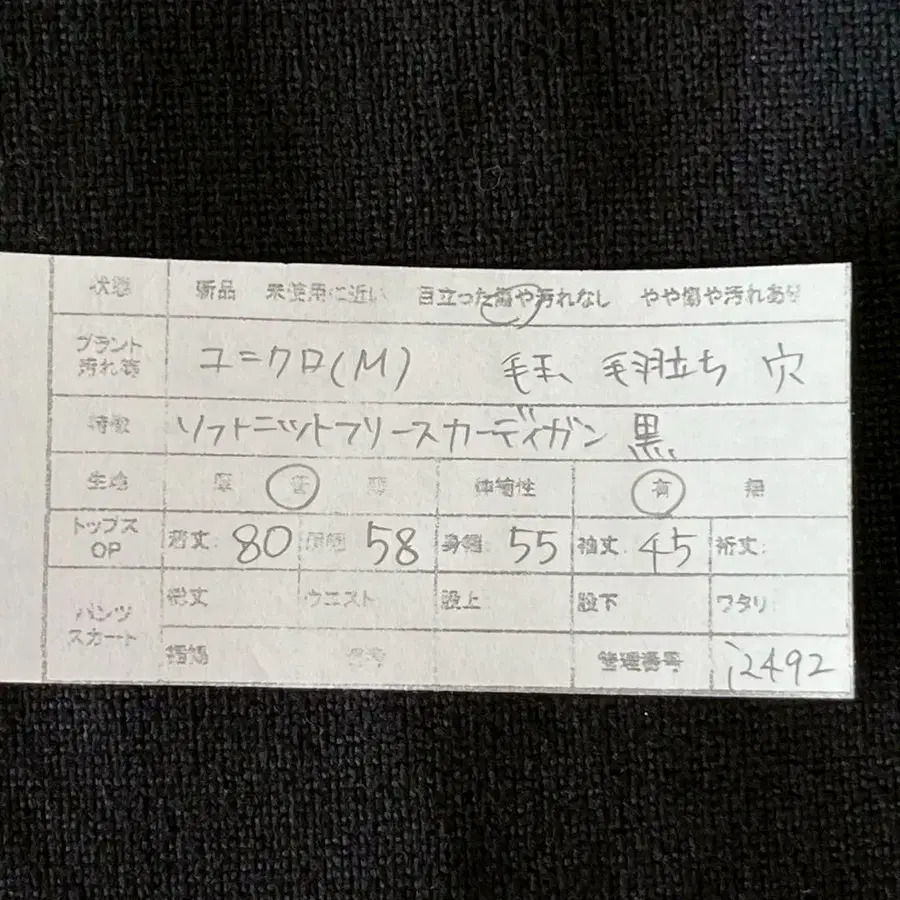 状態 新品 未使用に近い 目立った傷や汚れなし やや傷や汚れあり
ブランド 汚れ等 ユニクロ(M) 毛玉、毛羽立ち 穴
特徴 ソフトニットフリースカーディガン 黒
生地 厚 普 薄 伸縮性 有 無
トップス OP 着丈: 80 肩幅 58 身幅: 55 袖丈: 45 裄丈:
パンツ スカート 総丈 ウエスト 股上 股下 ワタリ
裾幅 管理番号 i2492